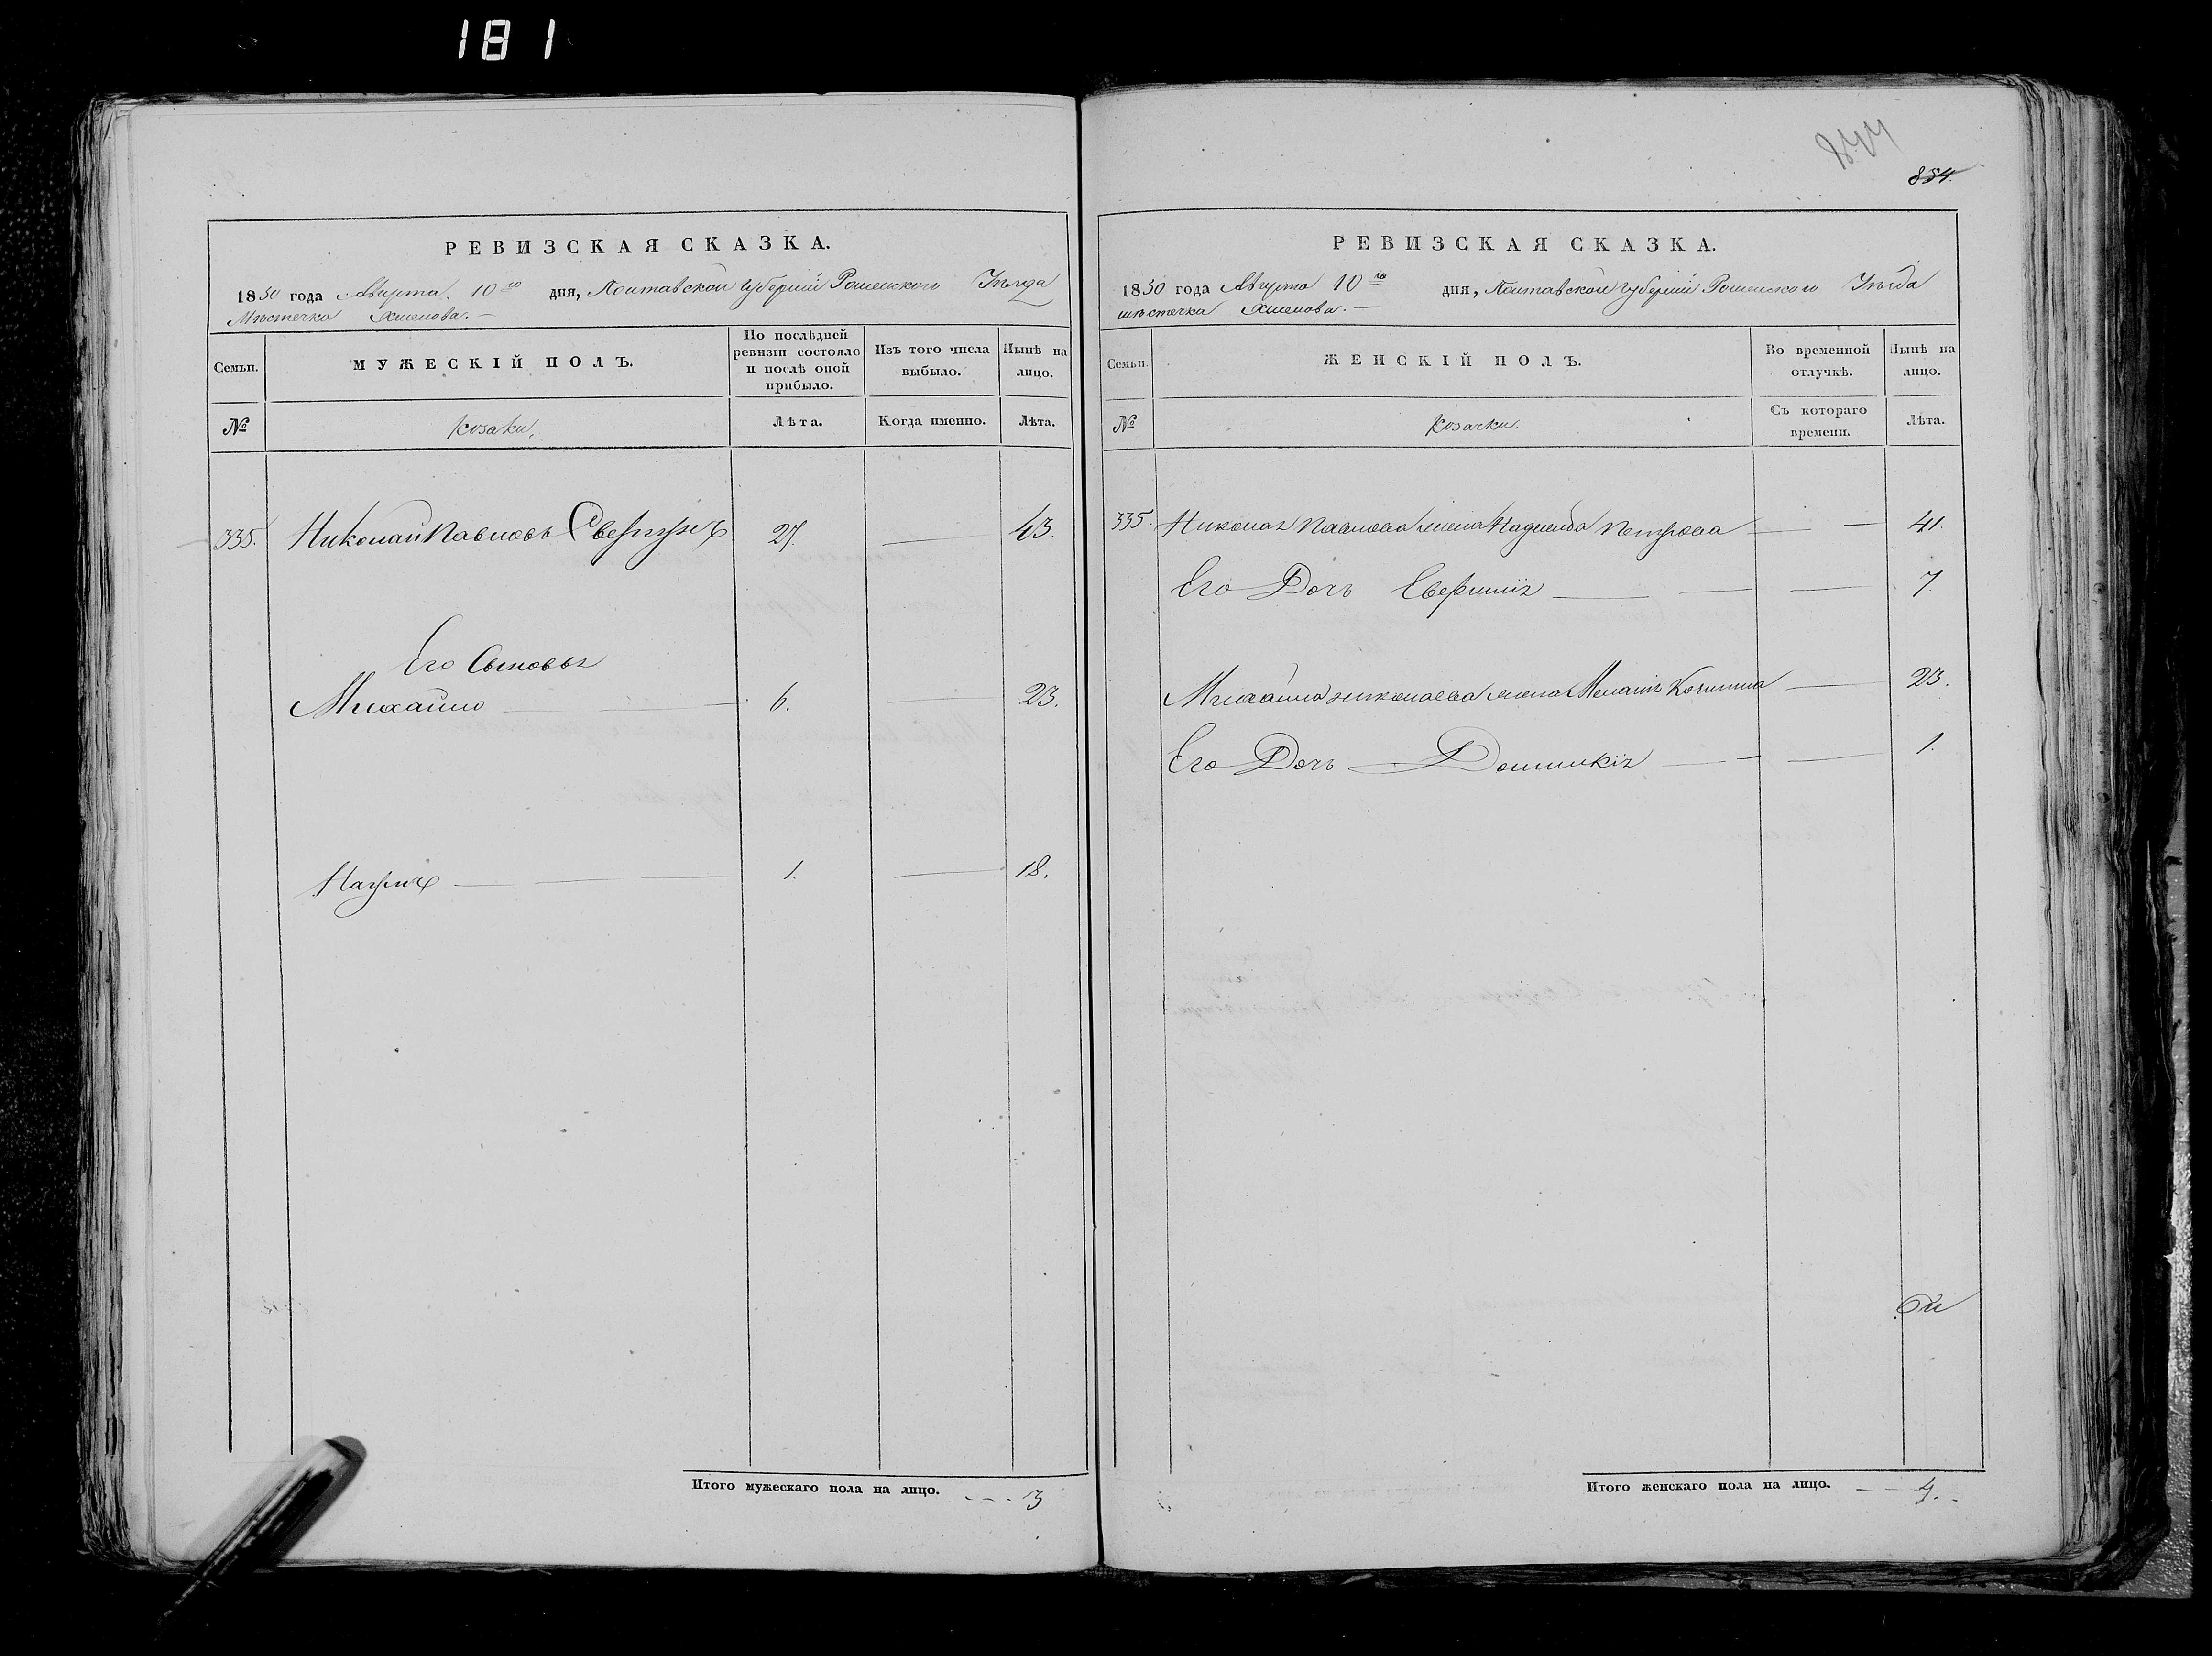 181
844
854.
РЕВИЗСКАЯ СКАЗКА.
1850 года Августа 10го дня, Полтавской Губернии Роменского Уезда
Местечка Хмелова.
Семьи.
МУЖЕСКІЙ ПОЛЪ.
По послѣдней ревизіи состояло и послѣ оной прибыло.
Изъ того числа выбыло.
Нынѣ на лицо.
№
козаки,
Лѣта.
Когда именно.
Лѣта.
335. Николай Павловъ 27. 43.
Его Сыновья
Михайло 6. 23.
Наумъ 1. 18.
Итого мужескаго пола на лицо. 3
РЕВИЗСКАЯ СКАЗКА.
1850 года Августа 10го дня, Полтавской Губернии Роменского Уезда
местечка Хмелова.
Семьи.
ЖЕНСКІЙ ПОЛЪ.
Во временной отлучкѣ.
Нынѣ на лицо.
№
козачки.
Съ котораго времени.
Лѣта.
335. Николая Павлова жена Надежда Петрова 41.
Его Дочь 7.
Михайла Николаева жена Мелания 23.
Его Дочь Домникія 1.
Итого женскаго пола на лицо. 4.